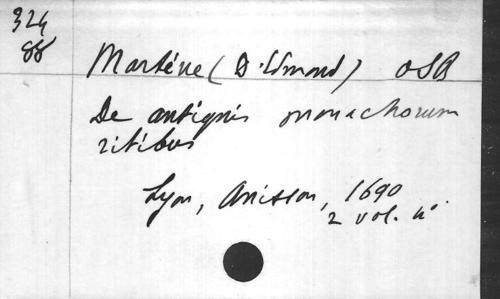 324
88
Martène (D. Edmond) OSB
De antiquis monachorum
ritibus
Lyon, Anisson, 1690
2 vol. 4°